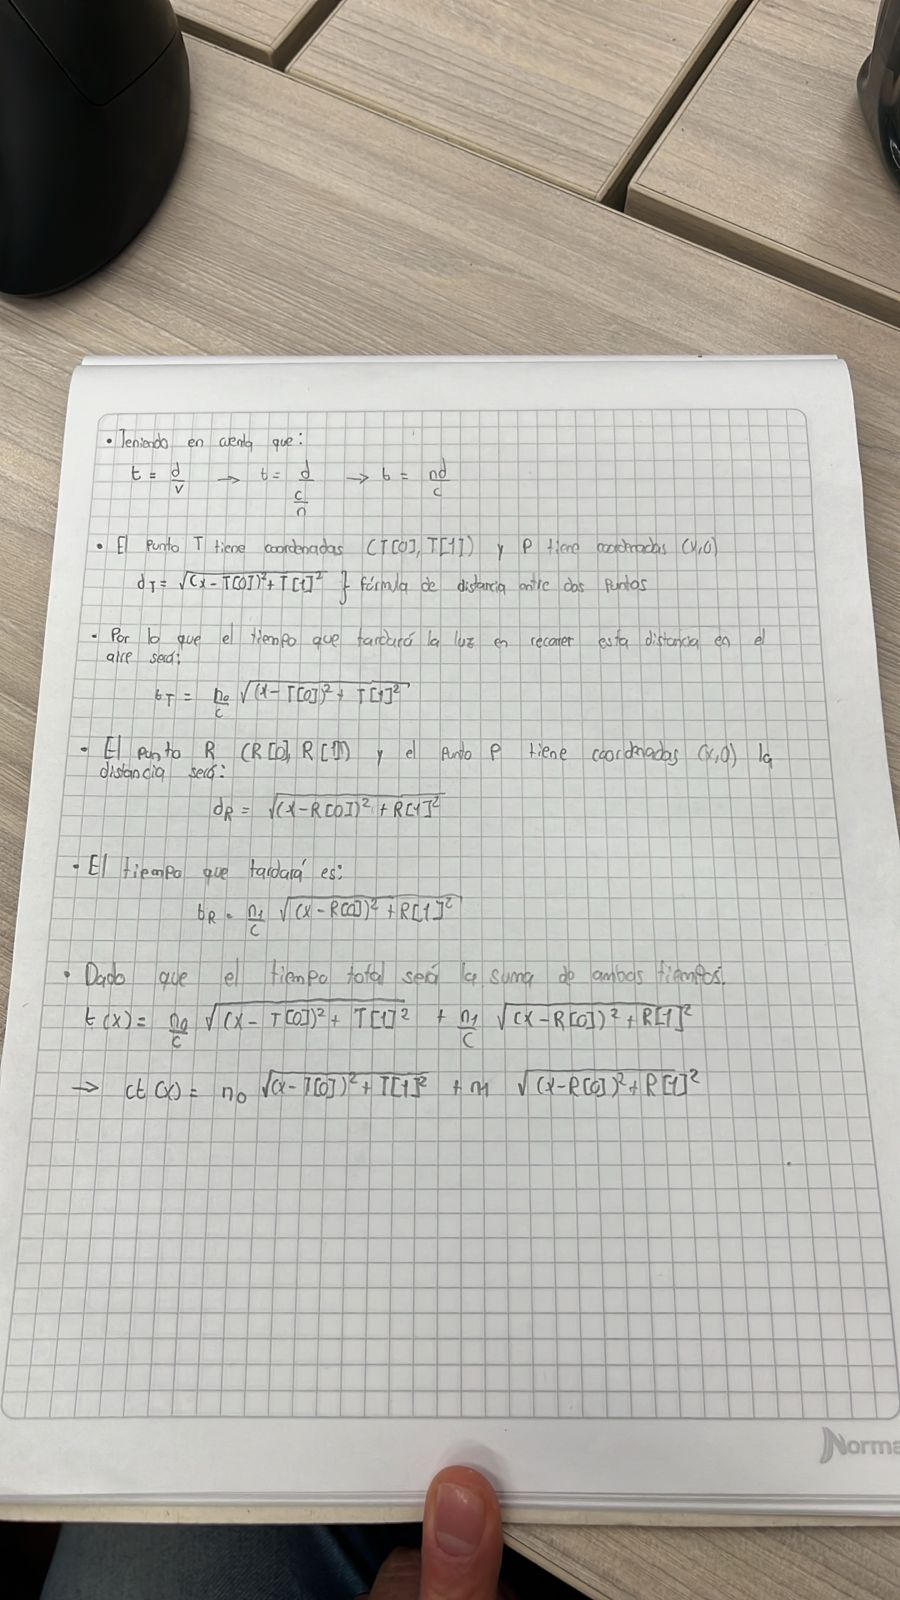 • Teniendo en cuenta que:
t = d/v → t = d/(c/n) → t = nd/c
• El punto T tiene coordenadas (T[0], T[1]) y P tiene coordenadas (x,0)
dT = √((x-T[0])²+T[1]²) } fórmula de distancia entre dos puntos
• Por lo que el tiempo que tardará la luz en recorrer esta distancia en el
aire será:
tT = n0/c √((x-T[0])²+T[1]²)
• El punto R (R[0], R[1]) y el punto P tiene coordenadas (x,0) la
distancia será:
dR = √((x-R[0])²+R[1]²)
• El tiempo que tardará es:
tR = n1/c √((x-R[0])²+R[1]²)
• Dado que el tiempo total será la suma de ambos tiempos.
t(x) = n0/c √((x-T[0])²+T[1]²) + n1/c √((x-R[0])²+R[1]²)
→ ct(x) = n0 √((x-T[0])²+T[1]²) + n1 √((x-R[0])²+R[1]²)
Norma